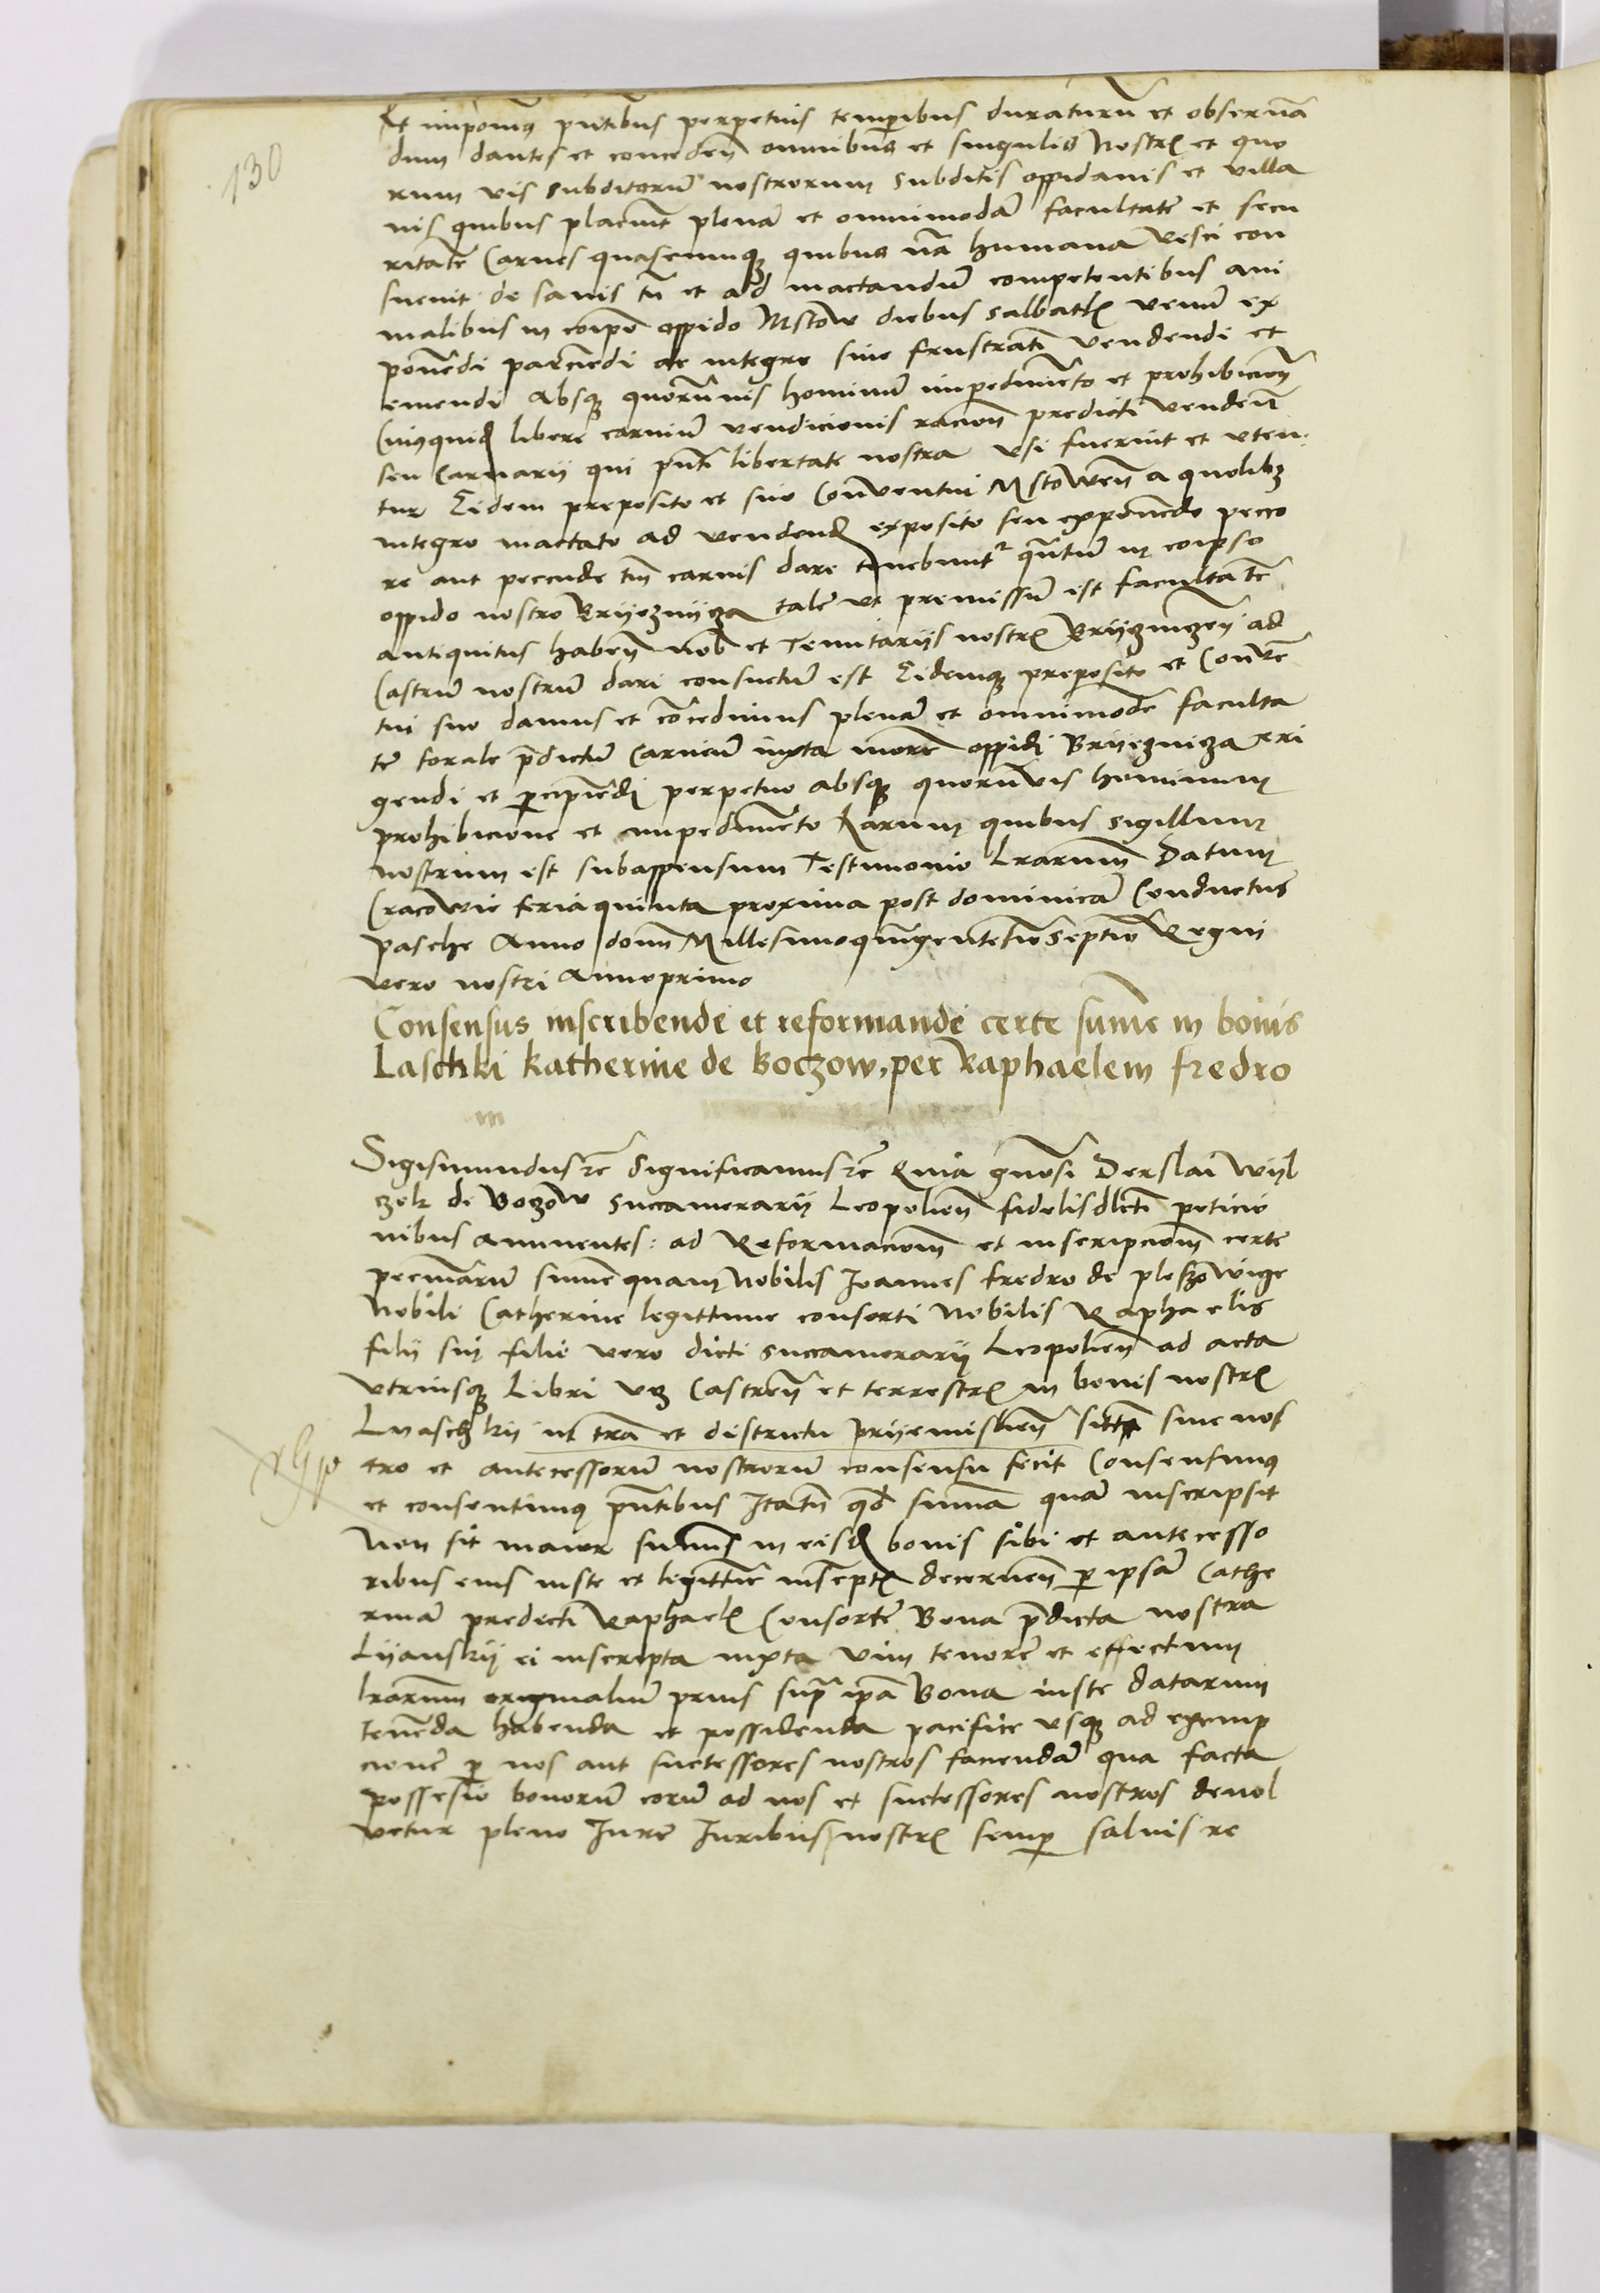 130
Et imponimus pntibus perpetuis temporibus duraturum et obseruan
dum dantes et conceden omnibus et singulis nostris et quo
rum vis subditorum nostrorum subditis oppidanis et villa
nis quibus placuerit plenam et omnimodam facultatem et secu
ritatem Carnes quascumque quibus natura humana vesci con
sueuit de sanis tn et ad mactandum competentibus ani
malibus in oppido Mstow diebus sabbatis venum ex
ponendi parciendi ac integre siue frustratim vendendi et
emendi Absque quorumuis hominum impedimento et prohibicione
Cuiusquidem libere carnium vendicionis racione predicti venden
seu Carnarii qui pnti libertate nostra vsi fuerint et vten
tur Eidem preposito et suo Conuentui Mstowien a quolibet
integro mactato ad vendend exposito seu exponendo peco
re aut pecude tm carnis dare tenebuntur quantum in
oppido nostro Brijeznijcza talem vt premissum est facultatem
antiquitus haben nob et Tenutarijs nostris Brijeznicen ad
Castrum nostrum dari consuetum est Eidemque preposito et Conuen
tui suo damus et concedimus plenam et omnimodem faculta
tem forale predictum Carnium iuxta morem oppidi Brijeznicza exi
gendi et percipiendi perpetuo absque quorumvis hominum
prohibicione et impedimento harum quibus sigillum
nostrum est subappensum Testimonio Lrarum Datum
Cracowie feria quinta proxima post dominicam Conductus
pasche Anno domini Millesimoquingentesimoseptimo Regni
vero nostri Annoprimo
Consensus inscribende et reformande certe summe in bonis
Laschki Katherine de Boczow, per Raphaelem Fredro
Sigismundus etc Significamus etc Quia generosi Derslai Wijl
czek de Boczow Succamerarij Leopolien fidelis dilecti peticio
nibus annuentes: ad Reformacionem et inscripcionem certe
pecuniarum summe quam Nobilis Joannes Fredro de Pleszowige
Nobili Catherine legittime consorti Nobilis Raphaelis
filij sui filie vero dicti succamerarij Leopolien ad acta
vtriusque Libri vz Castren et terrestris in bonis nostris
Lyaschkij in terra et districtu Prijemislien sitis sine nos
tro et antecessorum nostrorum consensu fecit Consensimus
et consentimus pntibus Itatn quod summa quam inscripsit
Non sit maior summis in eisdem bonis sibi et antecesso
ribus eius iuste et legittime inscriptis decernen per ipsam Cathe
rinam predicti Raphaelis Consortem Bona predicta nostra
Lijanskij ei inscripta iuxta vim tenorem et effectum
lrarum originalium prius supra ipsa Bona iuste datarum
tenenda habenda et possidenda pacifice vsque ad exemp
cionem per nos aut successores nostros faciendam qua facta
possessio bonorum eorum ad nos et successores nostros deuol
vetur pleno Iure Iuribus nostris semper saluis re